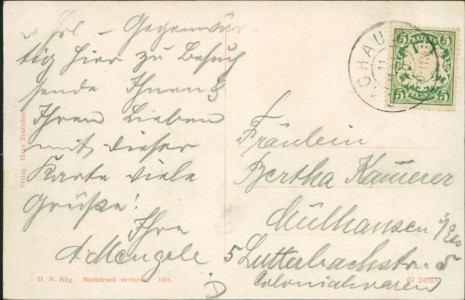 Gegenwär-
tig hier zu Besuch
sende Ihnen &
Ihren Lieben
mit dieser
Karte viele
Grüße!
Ihre
A Mengele
CHAU
5 BAYERN 5
5 PFENNIG 5
Fräulein
Bertha Kammerer
Mülhausen i/Els
5 Lutterbachstr. 5
Colonialwaren
Verlag: Hans
H. N. Nbg. Nachdruck verboten